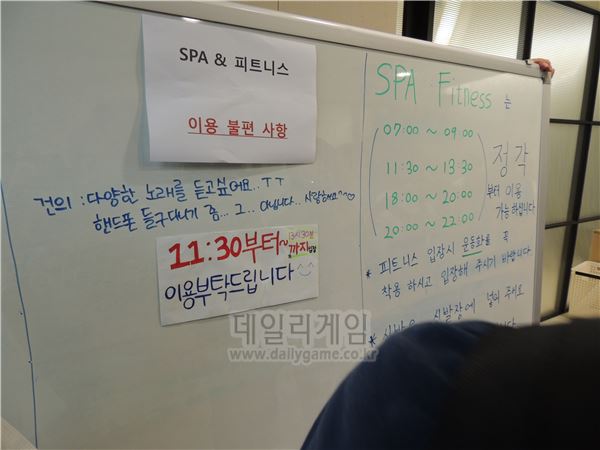 SPA & 피트니스
이용 불편 사항
건의 : 다양한 노래를 듣고싶어요... ㅜㅜ
핸드폰 들구다니기 좀... 그... 아닙니다... 사랑해요^^♡
11:30부터~ 까지
이용부탁드립니다
SPA Fitness 는
07:00 ~ 09:00
11:30 ~ 13:30
18:00 ~ 20:00
20:00 ~ 22:00
정각
부터 이용
가능하십니다
* 피트니스 입장시 운동화를 꼭
착용 하시고 입장해 주시기 바랍니다
* 신발장에 넣어 주시고
데일리게임
www.dailygame.co.kr